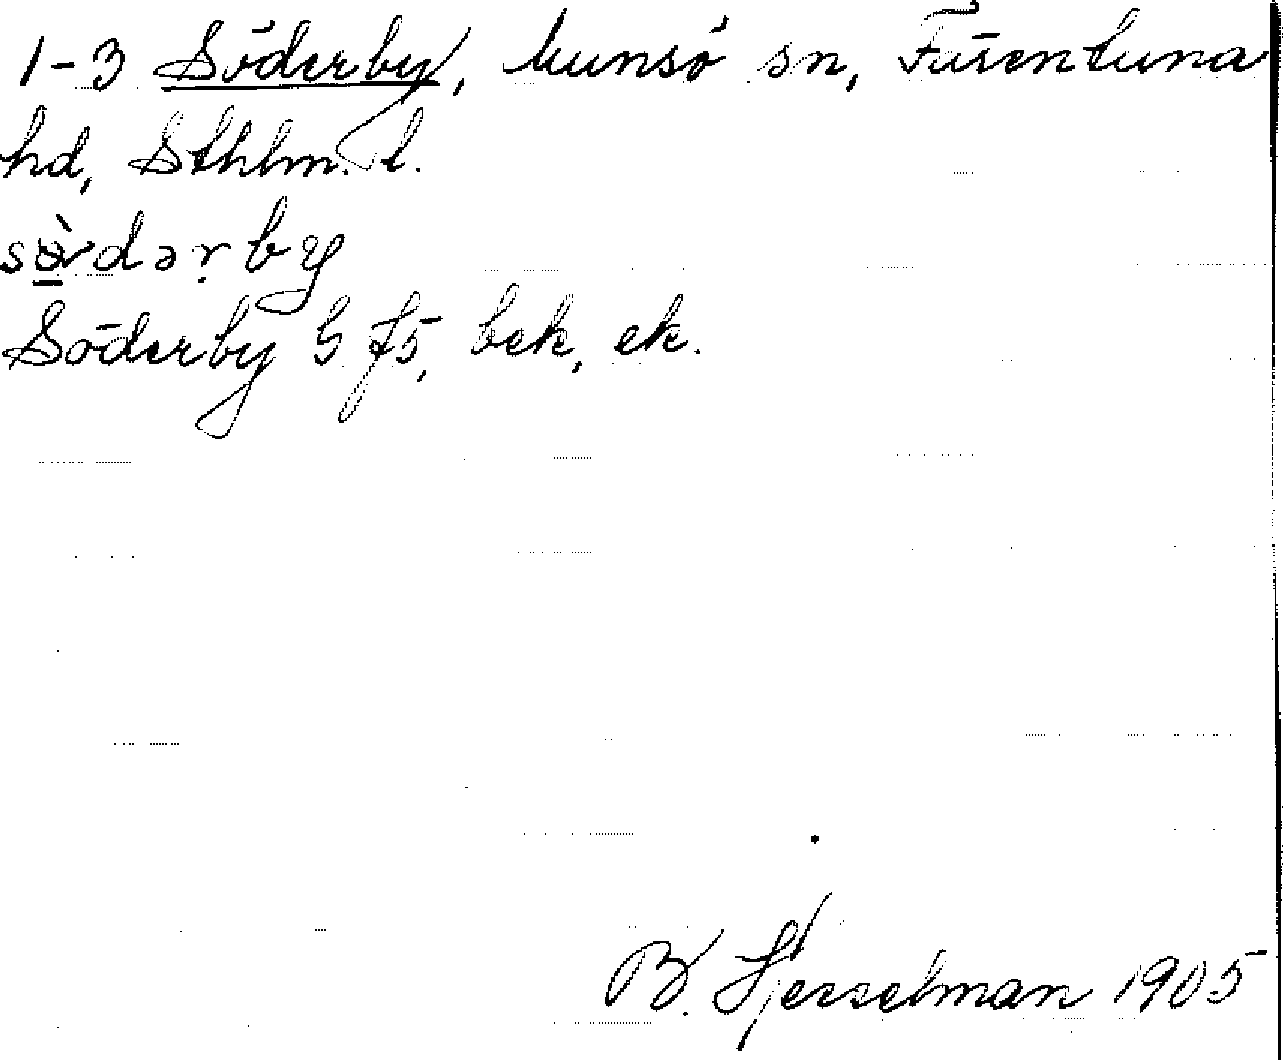 1-3 Söderby, Munsö sn, Färentuna
hd, Sthlm. l.
sö̀dərby
Söderby G f5, bek, ek.
B. Hesselman 1905